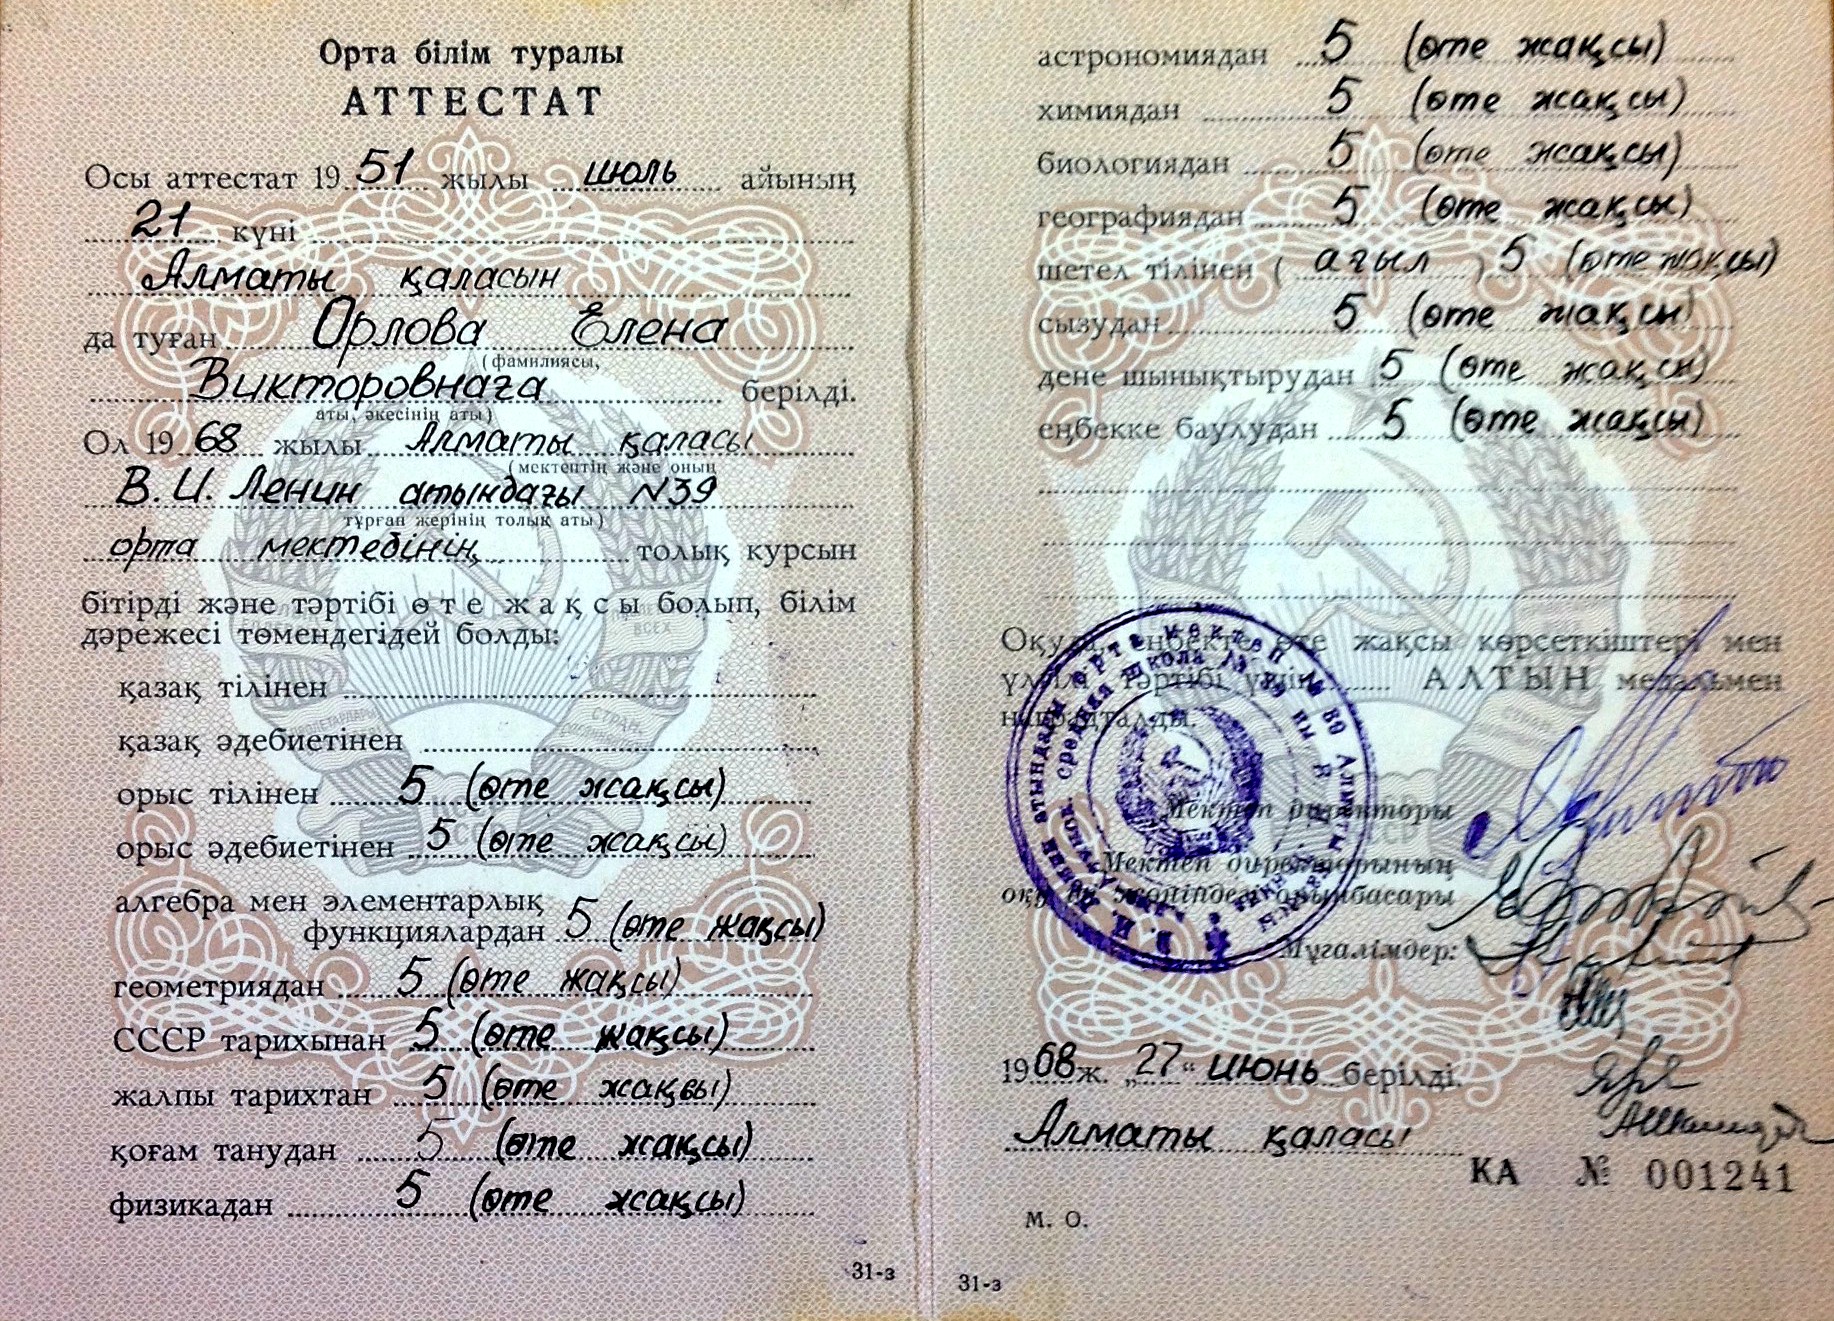 Орта білім туралы
АТТЕСТАТ
Осы аттестат 1951 жылы июль айының
21 күні
Алматы қаласын
да туған Орлова Елена
(фамилиясы,
Викторовнаға берілді.
аты, әкесінің аты)
Ол 1968 жылы Алматы қаласы
(мектептің және оның
В.И. Ленин атындағы №39
тұрған жерінің толық аты)
орта мектебінің толық курсын
бітірді және тәртібі өте жақсы болып, білім
дәрежесі төмендегідей болды:
қазақ тілінен
қазақ әдебиетінен
орыс тілінен 5 (өте жақсы)
орыс әдебиетінен 5 (өте жақсы)
алгебра мен элементарлық
функциялардан 5 (өте жақсы)
геометриядан 5 (өте жақсы)
СССР тарихынан 5 (өте жақсы)
жалпы тарихтан 5 (өте жақсы)
қоғам танудан 5 (өте жақсы)
физикадан 5 (өте жақсы)
31-з
астрономиядан 5 (өте жақсы)
химиядан 5 (өте жақсы)
биологиядан 5 (өте жақсы)
географиядан 5 (өте жақсы)
шетел тілінен (ағыл) 5 (өте жақсы)
сызудан 5 (өте жақсы)
дене шынықтырудан 5 (өте жақсы)
еңбекке баулудан 5 (өте жақсы)
Оқуда, еңбекте өте жақсы көрсеткіштері мен
үлгілі тәртібі үшін АЛТЫН медальмен
наградталды.
Мектеп директоры
Мектеп директорының
оқу ісі жөніндегі орынбасары
Мұғалімдер:
1968 ж. „27“ июнь берілді.
Алматы қаласы
КА № 001241
М. О.
31-з